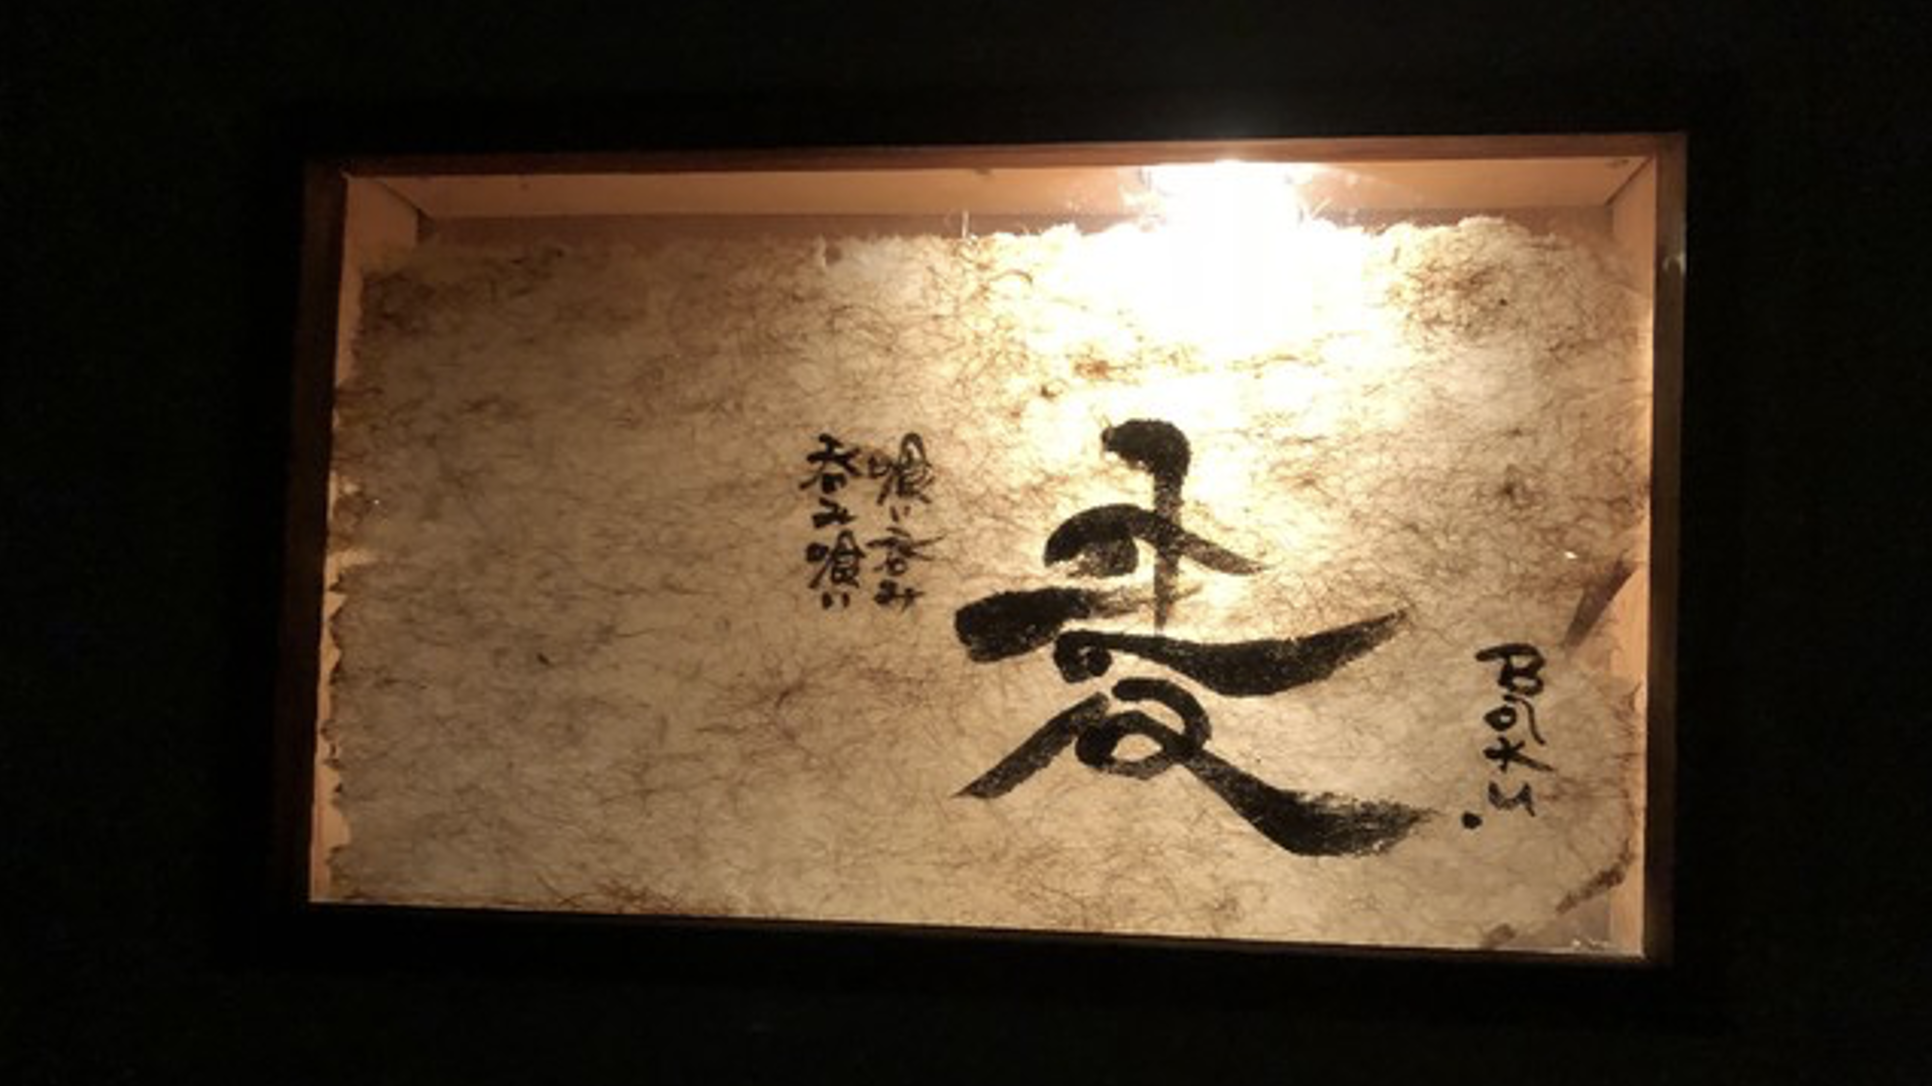 Baku.
麦
喰い呑み
呑み喰い